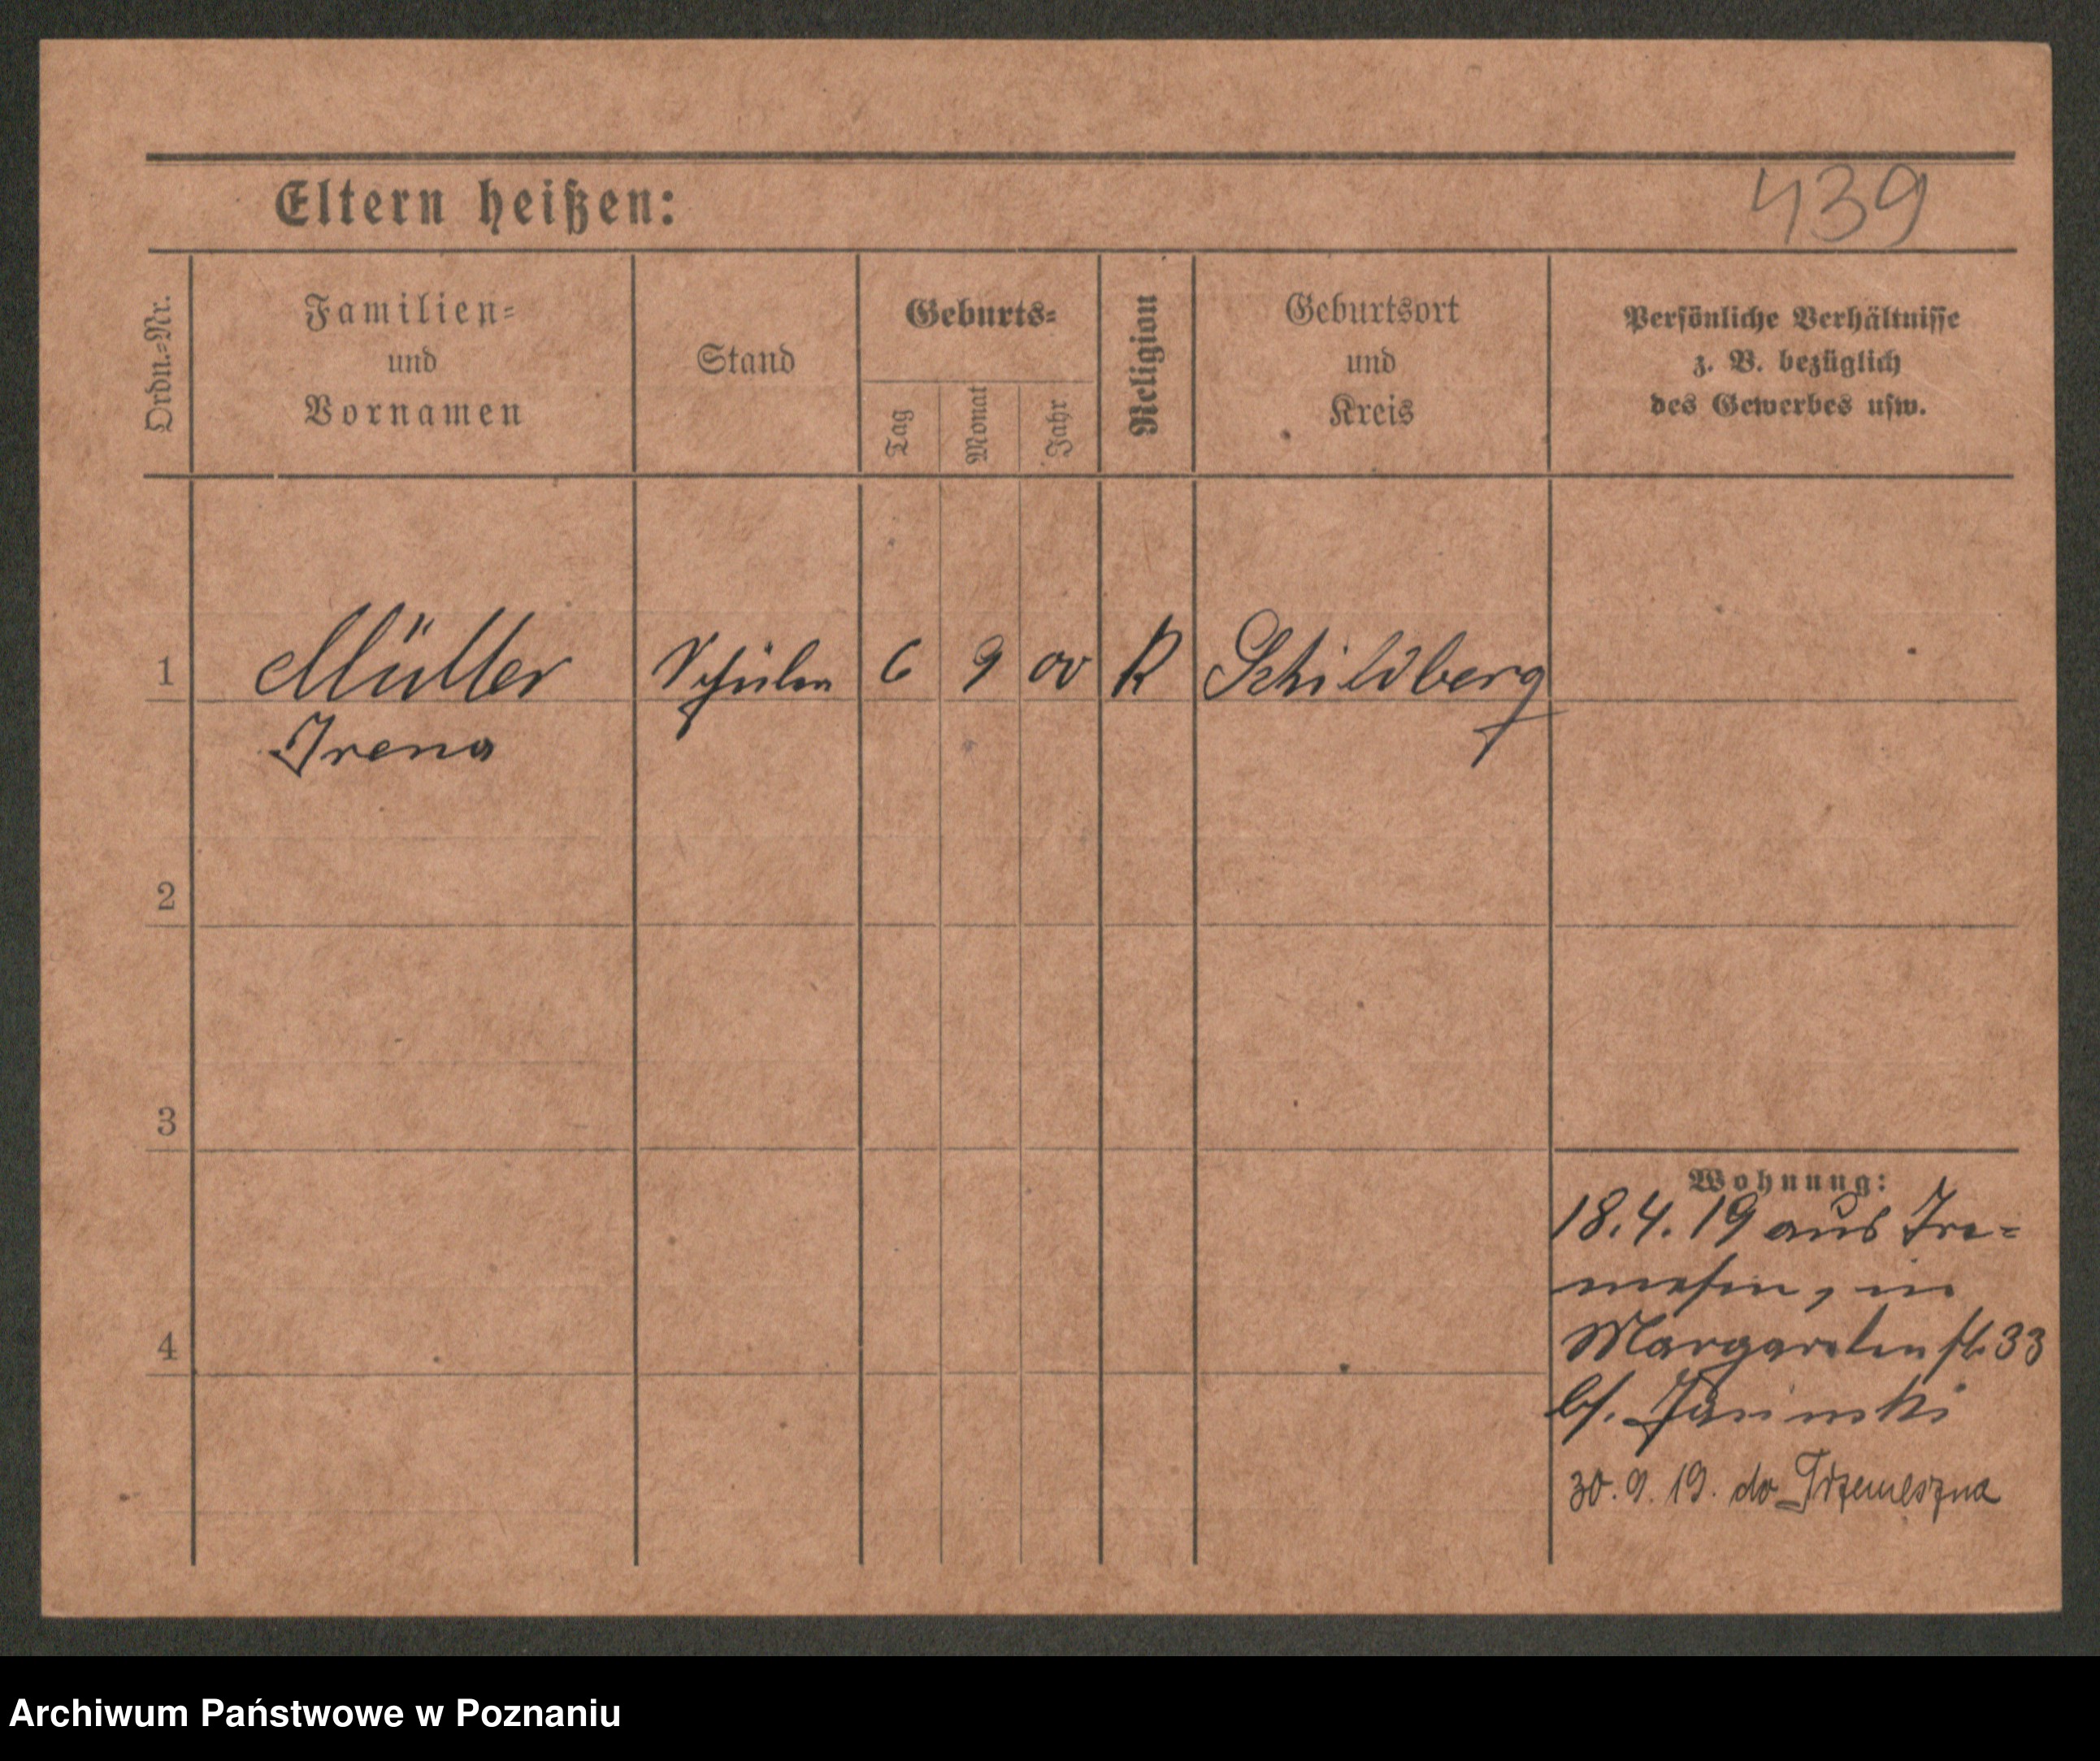 Eltern heißen:
439
Ordn.-Nr.
Familien-
und
Vornamen
Stand
Geburts-
Tag
Monat
Jahr
Religion
Geburtsort
und
Kreis
Persönliche Verhältnisse
z. B. bezüglich
des Gewerbes usw.
1 Müller Schülen 6 9 00 R Schildberg
Irena
2
3
4
Wohnung:
18.4.19 aus Tre-
messen, in
Margareten st. 33
bf.
30.9.19. do Trzemeszna
Archiwum Państwowe w Poznaniu